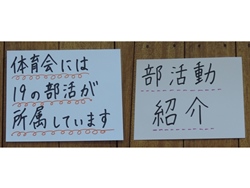 体育会には
19の部活が
所属しています
部活動
紹介